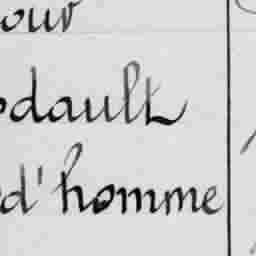 our
odault
d'homme